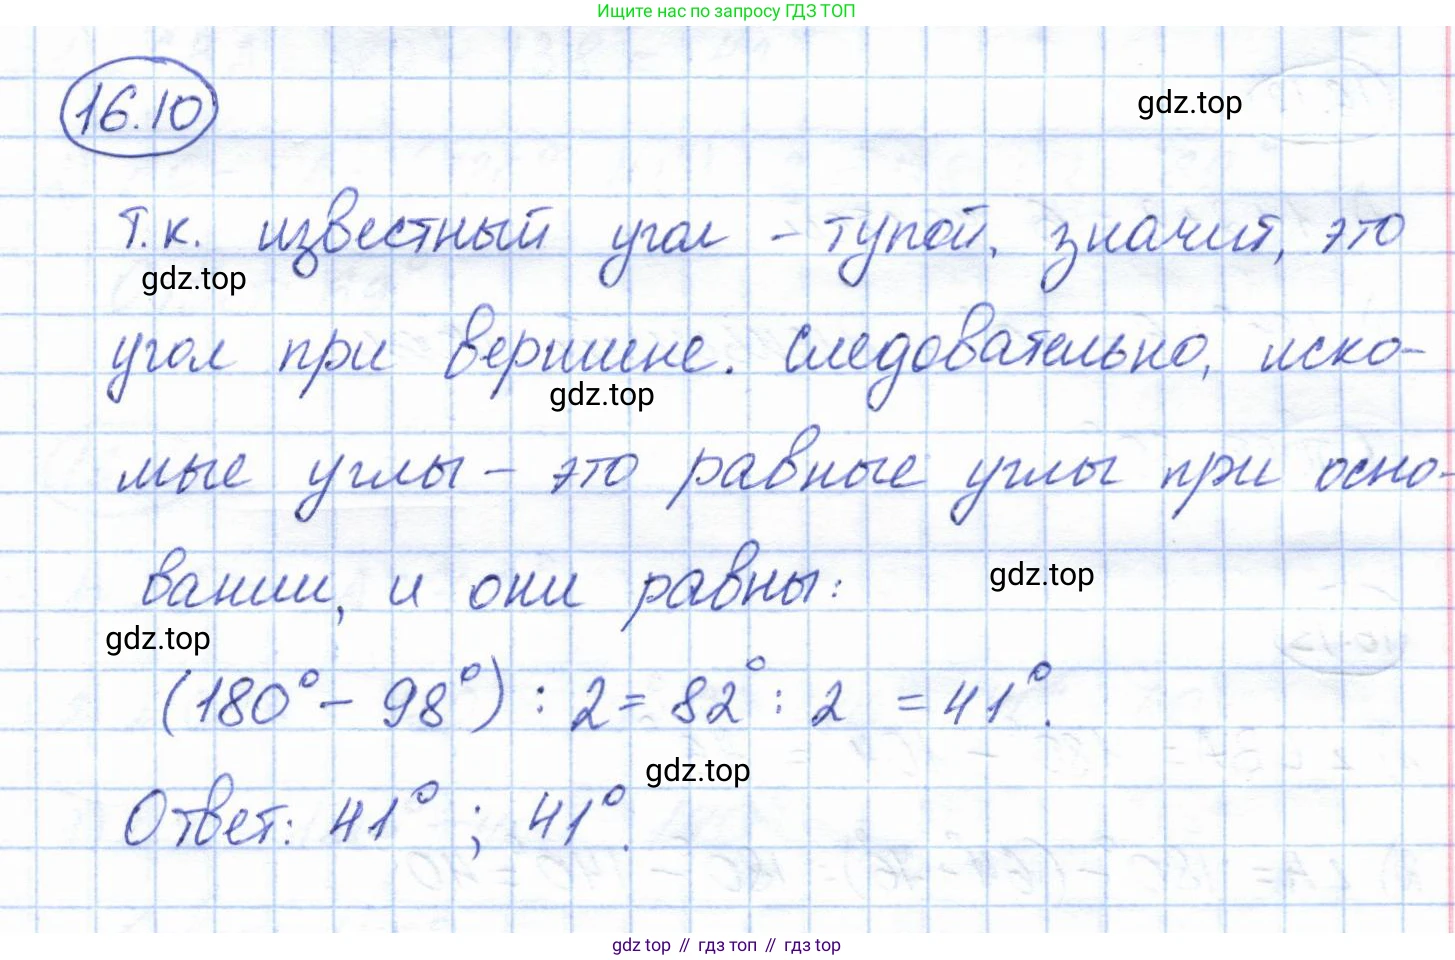 Ищите нас по запросу ГДЗ ТОП
16.10
gdz.top
т.к. известный угол - тупой, значит, это
gdz.top
угол при вершине. Следовательно, иско-
gdz.top
мые углы - это равные углы при осно-
вании, и они равны:
gdz.top
gdz.top
(180° - 98°) : 2 = 82° : 2 = 41°.
gdz.top
Ответ: 41° ; 41°.
gdz top // гдз топ // гдз top